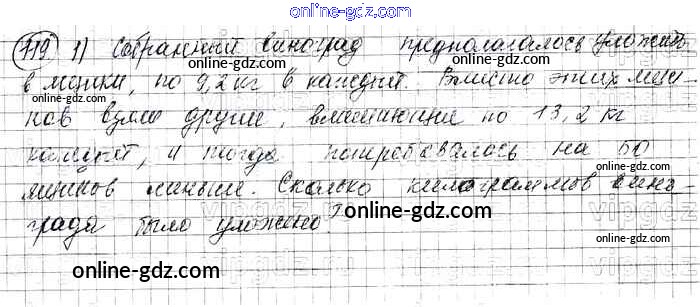 online-gdz.com
719 1) Собранный виноград предполагалось уложить
online-gdz.com
в ящики, по 9,2 кг в каждый. Вместо этих ящи-
ков взяли другие, вмещающие по 13,2 кг
каждый, и тогда потребовалось на 50
online-gdz.com
ящиков меньше. Сколько килограммов вино-
online-gdz.com
града было уложено?
online-gdz.com
online-gdz.com